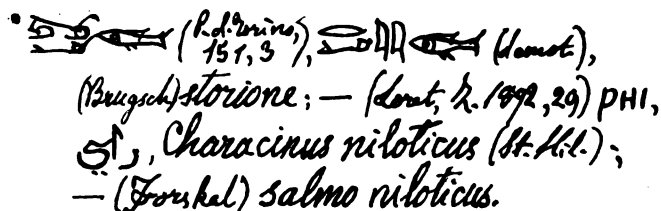 (P. d. Torino, 151, 3), (demot.),
(Brugsch) storione; — (Loret, Z. 1892, 29) ⲣⲏⲓ,
راى, Characinus niloticus (St. Hil.);
— (Forskal) salmo niloticus.